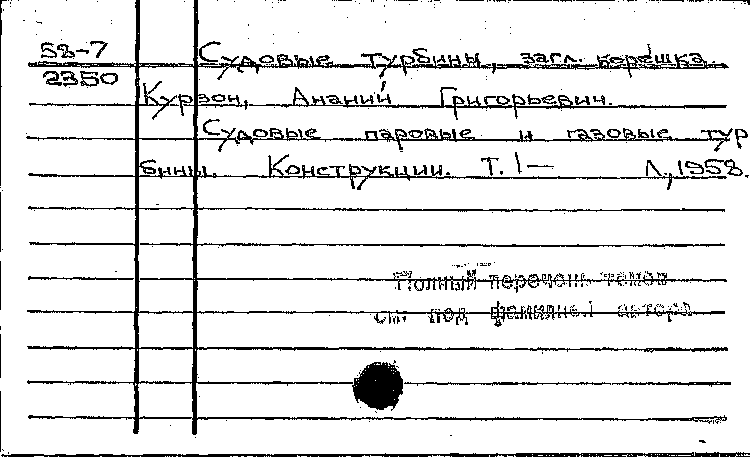 58-7
2350
Судовые турбины, загл. корешка
Курзон, Ананий Григорьевич.
Судовые паровые и газовые тур
бины. Конструкции. Т. 1— Л., 1958.
Полный перечень томов
см. под фамилией автора